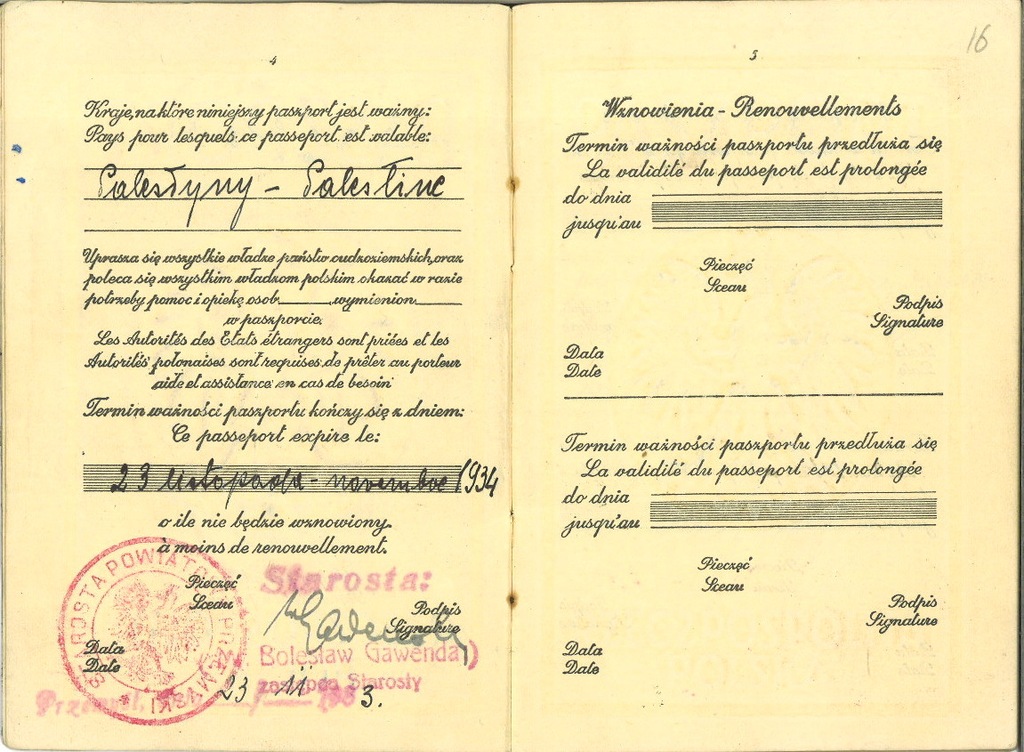 4
Kraje, na które niniejszy paszport jest ważny:
Pays pour lesquels ce passeport est valable:
Palestyny - Palestine
Uprasza się wszystkie władze państw cudzoziemskich, oraz
poleca się wszystkim władzom polskim okazać w razie
potrzeby pomoc i opiekę osob______ wymienion______
w paszporcie.
Les Autorités des Etats étrangers sont priées et les
Autorités polonaises sont requises de prêter au porteur
aide et assistance en cas de besoin
Termin ważności paszportu kończy się z dniem:
Ce passeport expire le:
23 listopada - novembre 1934
o ile nie będzie wznowiony.
à moins de renouvellement.
STAROSTA POWIATOWY PRZEMYSKI
Pieczęć
Sceau
Starosta:
Podpis
Signature
(Bolesław Gawenda)
zastępca Starosty
Data
Date
Przemyśl, 23 11 1933.
16
5
Wznowienia - Renouvellements
Termin ważności paszportu przedłuża się
La validité du passeport est prolongée
do dnia
jusqu'au
Pieczęć
Sceau
Podpis
Signature
Data
Date
Termin ważności paszportu przedłuża się
La validité du passeport est prolongée
do dnia
jusqu'au
Pieczęć
Sceau
Podpis
Signature
Data
Date